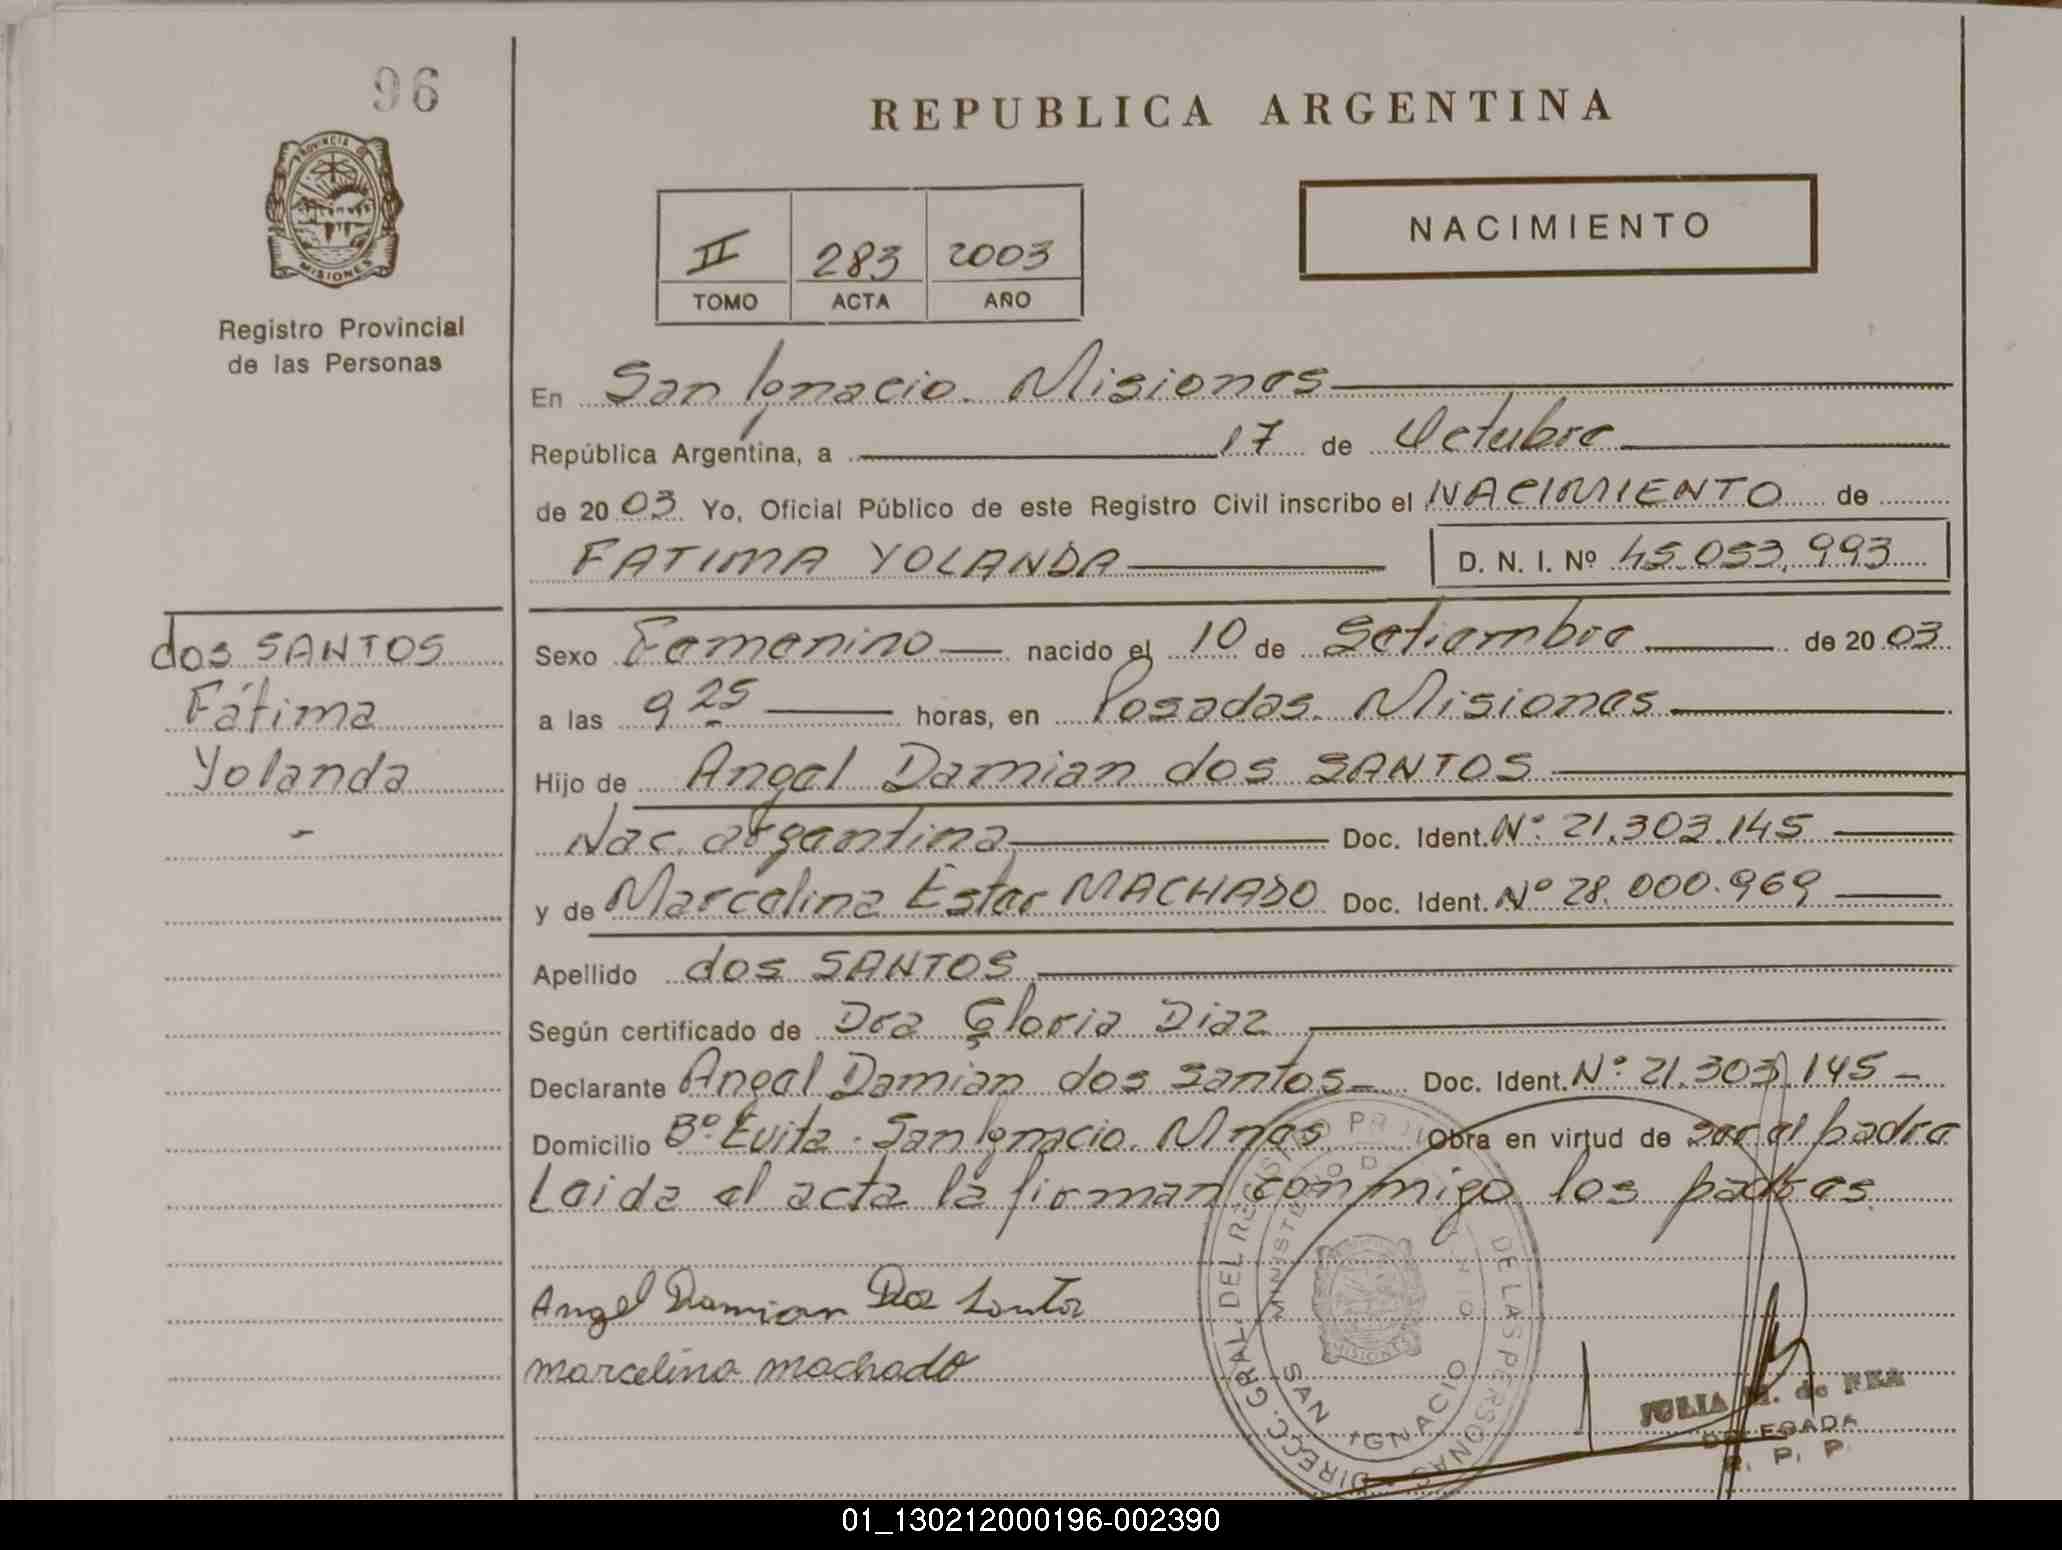 96
REPUBLICA ARGENTINA
PROVINCIA DE
MISIONES
Registro Provincial
de las Personas
II 283 2003
TOMO ACTA AÑO
NACIMIENTO
En San Ignacio. Misiones
República Argentina, a 17 de Octubre
de 2003 Yo, Oficial Público de este Registro Civil inscribo el NACIMIENTO de
FATIMA YOLANDA D. N. I. Nº 45.053.993
dos SANTOS
Fátima
Yolanda
-
Sexo Femenino nacido el 10 de Setiembre de 2003
a las 9 25 horas, en Posadas. Misiones
Hijo de Angel Damian dos SANTOS
Nac. argentina Doc. Ident. Nº 21.303.145
y de Marcelina Ester MACHADO Doc. Ident. Nº 28.000.969
Apellido dos SANTOS
Según certificado de Dra Gloria Diaz
Declarante Angel Damian dos santos Doc. Ident. Nº 21.303.145
Domicilio Bº Evita. San Ignacio. Mnes Obra en virtud de ser el padre
Leida el acta la firman conmigo los padres.
Angel Damian Dos Santos
marcelina machado
DIRECC. GRAL. DEL REGISTRO DE LAS PERSONAS
SAN IGNACIO
MISIONES
JULIA M. de
DELEGADA
R. P. P.
01_130212000196-002390